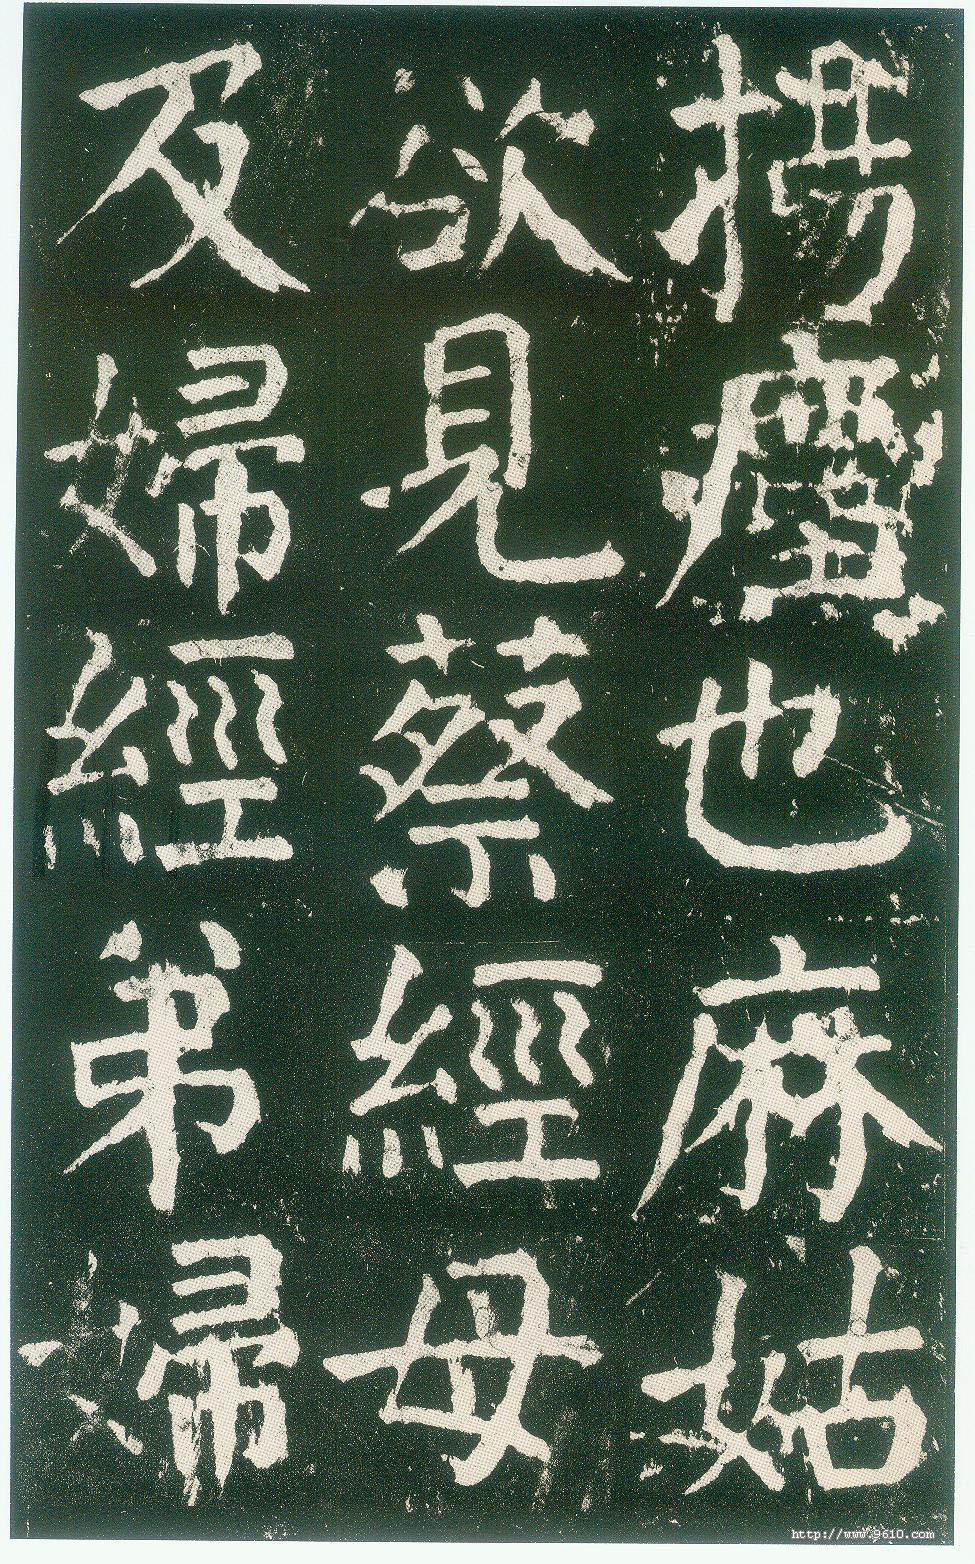 揚塵也麻姑
欲見蔡經母
及婦經弟婦
http://www.9610.com